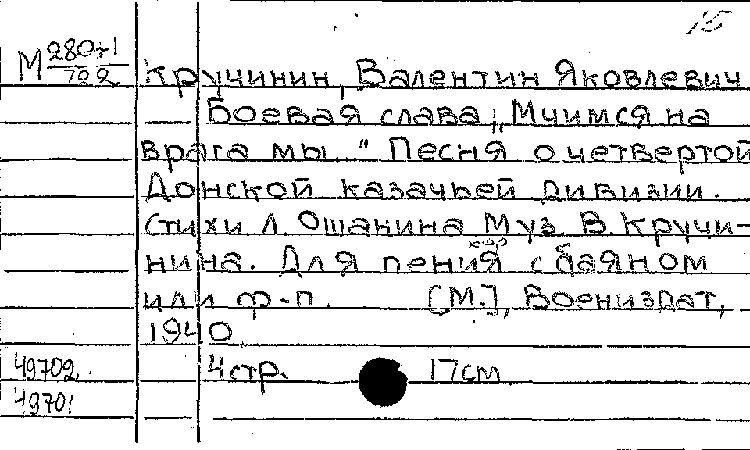 15
М 280+1
722
Кручинин, Валентин Яковлевич
— Боевая слава, „Мчимся на
врага мы..." Песня о четвертой
Донской казачьей дивизии.
Стихи Л. Ошанина Муз. В. Кручи-
нина. Для пения с баяном
или ф-п. [М.], Воениздат,
1940
49702 4 стр. 17 см
49701